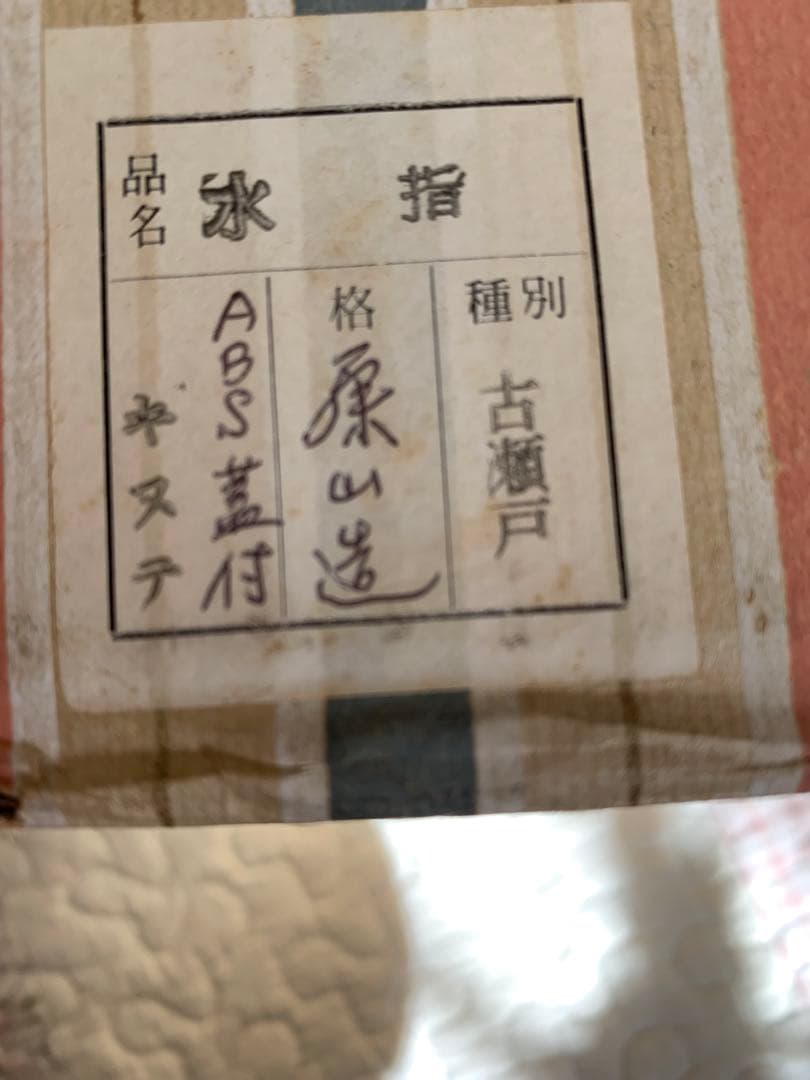 品名 水指
種別 古瀬戸
格 原山造
ABS蓋付
キヌテ